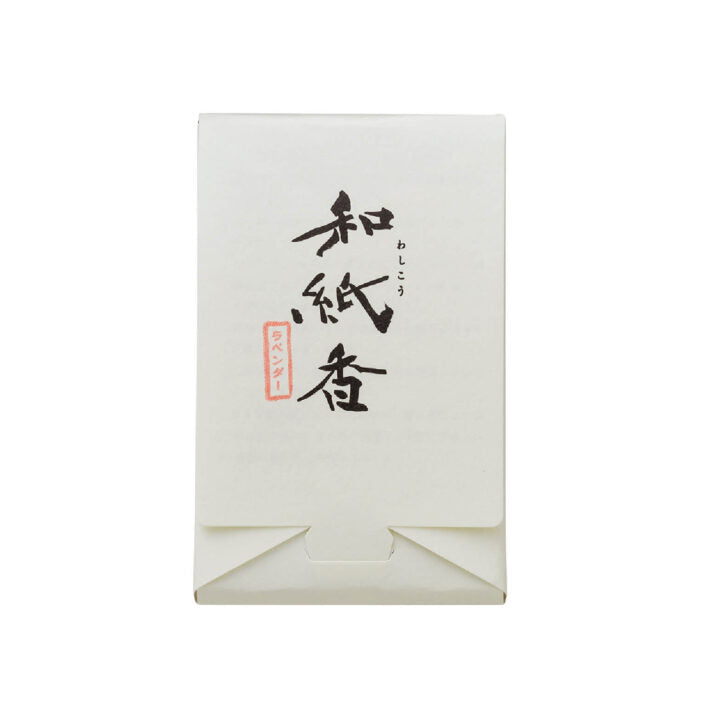 和紙香
わしこう
ラベンダー